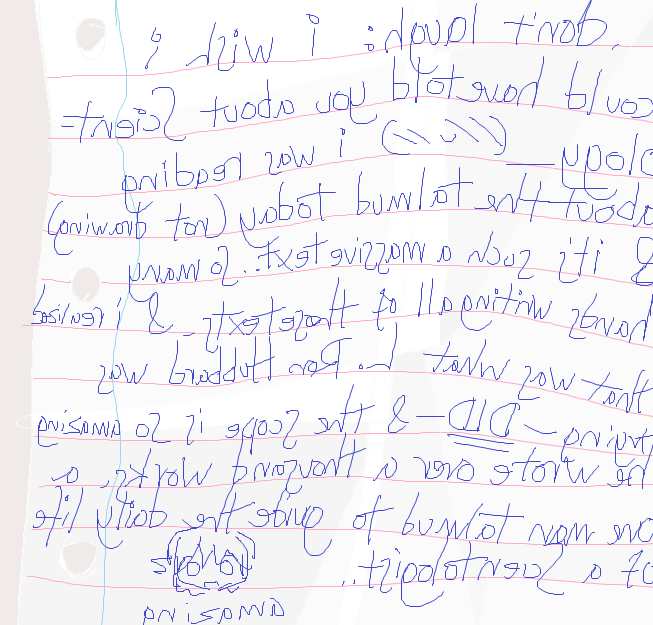 don't laugh: i wish i
could have told you about Scient=
ology — i was reading
about the talmud today (not drawing)
& it's such a massive text.. so many
hands writing all of these texts.. & i realised
that was what L. Ron Hubbard was
trying - DID - & the scope is so amazing
he wrote over a thousand works, a
one man talmud to guide the daily life
of a Scentologist..
amazing